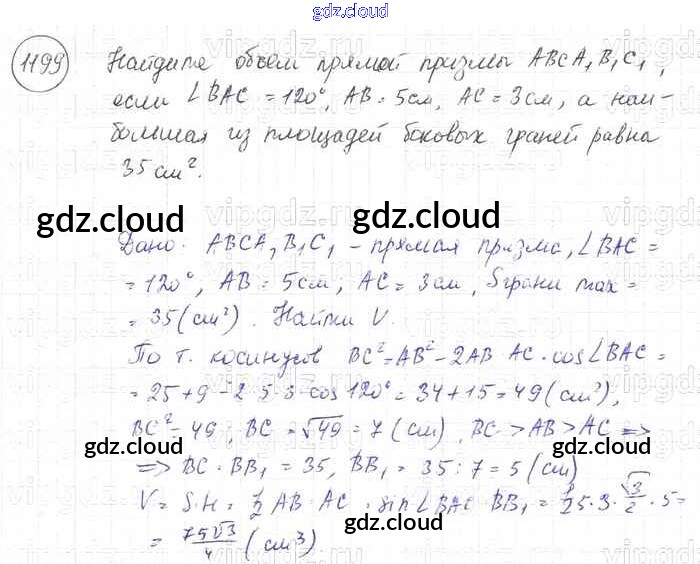 gdz.cloud
1199 Найдите объем прямой призмы ABCA₁B₁C₁,
если ∠BAC = 120°, AB = 5см, AC = 3см, а наи-
большая из площадей боковых граней равна
35 см².
gdz.cloud gdz.cloud
Дано: ABCA₁B₁C₁ - прямая призма, ∠BAC =
= 120°, AB = 5см, AC = 3см, Sграни max =
= 35(см²). Найти V.
По т. косинусов BC² = AB² - 2AB AC · cos∠BAC =
= 25 + 9 - 2·5·3·cos120° = 34 + 15 = 49 (см²),
BC² = 49, BC = √49 = 7 (см), BC > AB > AC =>
gdz.cloud gdz.cloud
=> BC · BB₁ = 35, BB₁ = 35 : 7 = 5 (см)
V = S·H = 1/2 AB · AC · sin∠BAC · BB₁ = 1/2 5·3·√3/2·5=
= 75√3/4 (см³)
gdz.cloud gdz.cloud